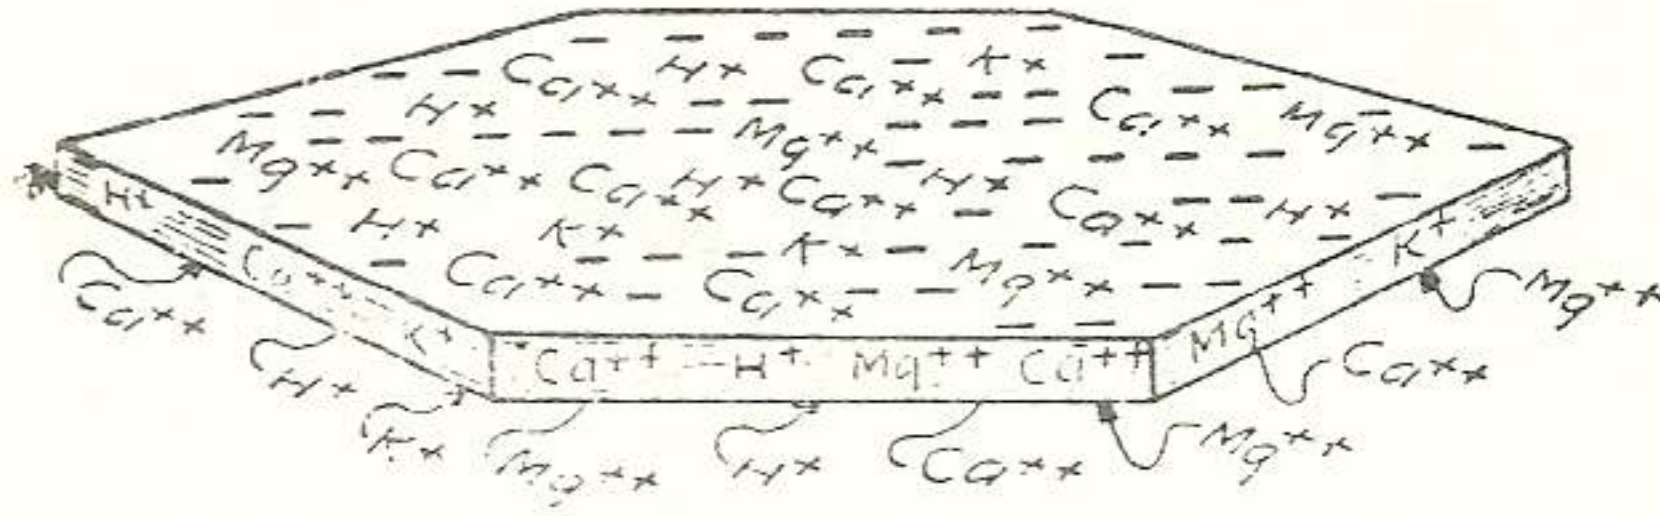 Ca++ H+ Ca++ K+
H+ Ca++ Mg++
Mg++ Ca++ Ca++ H+ Mg++ Ca++ H+ Ca++ H+
H+ K+ K+
Ca++ Ca++ Mg++
H+ Ca++ K+ Ca++ H+ Mg++ Ca++ Mg++ K+
Ca++ H+ K+ Mg++ H+ Ca++ Mg++ Ca++ Mg++